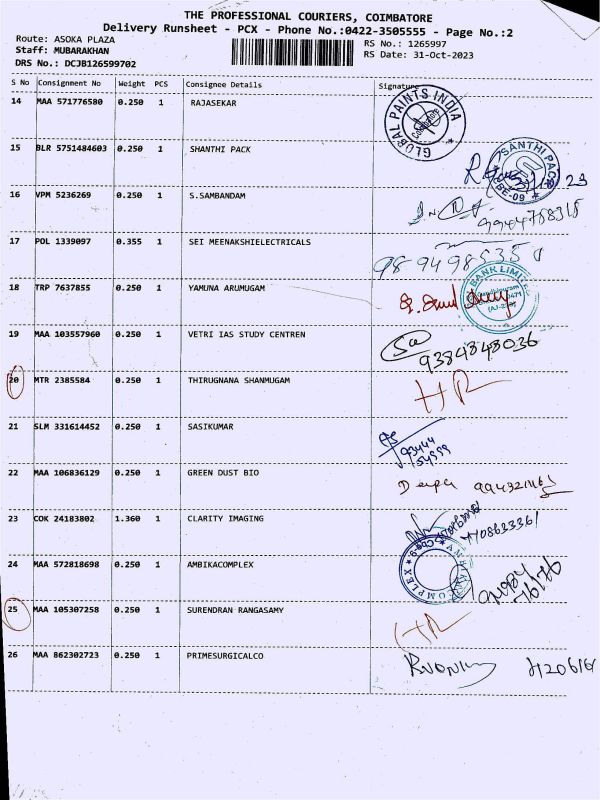 THE PROFESSIONAL COURIERS, COIMBATORE
Delivery Runsheet - PCX - Phone No.:0422-3505555 - Page No.:2
Route: ASOKA PLAZA RS No.: 1265997
Staff: MUBARAKHAN RS Date: 31-Oct-2023
DRS No.: DCJB126599702
S No Consignment No Weight PCS Consignee Details Signature
14 MAA 571776580 0.250 1 RAJASEKAR
GLOBAL PAINTS INDIA
15 BLR 5751484603 0.250 1 SHANTHI PACK
SANTHI PACK
CBE-09
16 VPM 5236269 0.250 1 S.SAMBANDAM
9944768318
17 POL 1339097 0.355 1 SEI MEENAKSHIELECTRICALS
18 TRP 7637855 0.250 1 YAMUNA ARUMUGAM
BANK LIMITED
19 MAA 103557960 0.250 1 VETRI IAS STUDY CENTREN
9384848036
20 MTR 2385584 0.250 1 THIRUGNANA SHANMUGAM
HR
21 SLM 331614452 0.250 1 SASIKUMAR
93444
54999
22 MAA 106836129 0.250 1 GREEN DUST BIO
Deepa
23 COK 24183802 1.360 1 CLARITY IMAGING
7708633361
24 MAA 572818698 0.250 1 AMBIKACOMPLEX
25 MAA 105307258 0.250 1 SURENDRAN RANGASAMY
HR
26 MAA 862302723 0.250 1 PRIMESURGICALCO